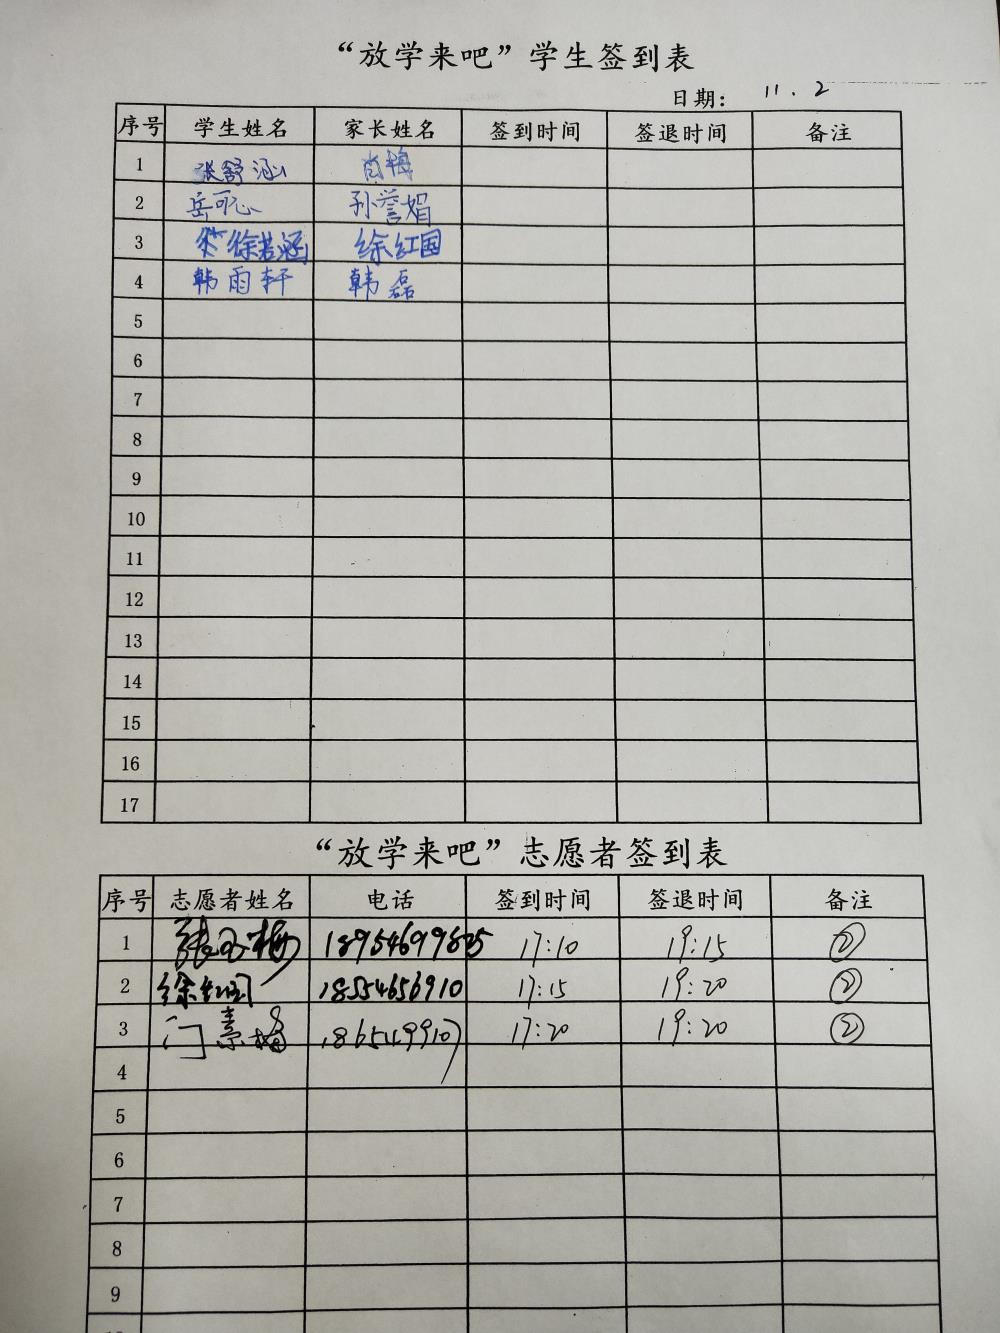 “放学来吧”学生签到表
日期： 11.2
序号 学生姓名 家长姓名 签到时间 签退时间 备注
1 张舒涵 肖梅
2 岳可心 孙誉娟
3 徐若涵 徐红国
4 韩雨轩 韩磊
5
6
7
8
9
10
11
12
13
14
15
16
17
“放学来吧”志愿者签到表
序号 志愿者姓名 电话 签到时间 签退时间 备注
1 张玉梅 17:10 19:15 ②
2 徐红国 18554656910 17:15 19:20 ②
3 门素梅 17:20 19:20 ②
4
5
6
7
8
9